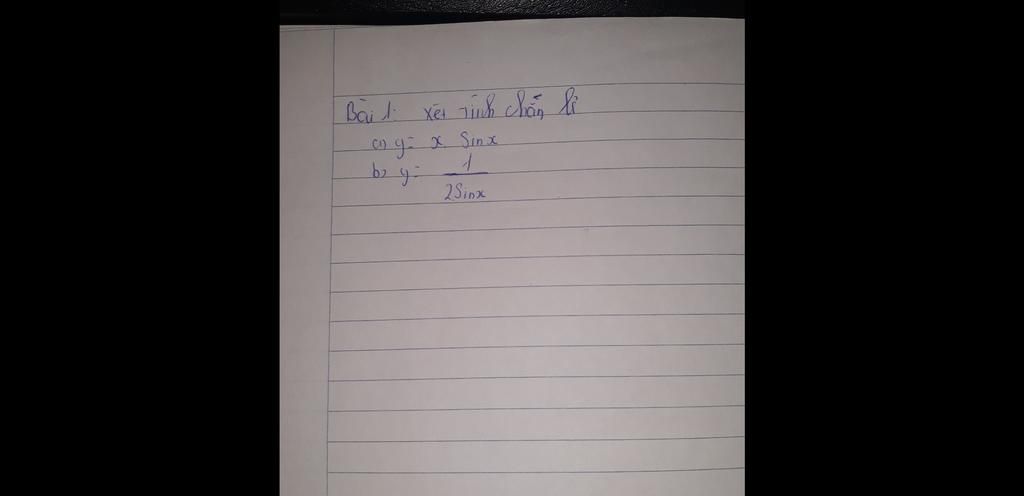 Bài 1: xét tính chẵn lẻ
a) y = x sinx
b) y = 1
2Sinx